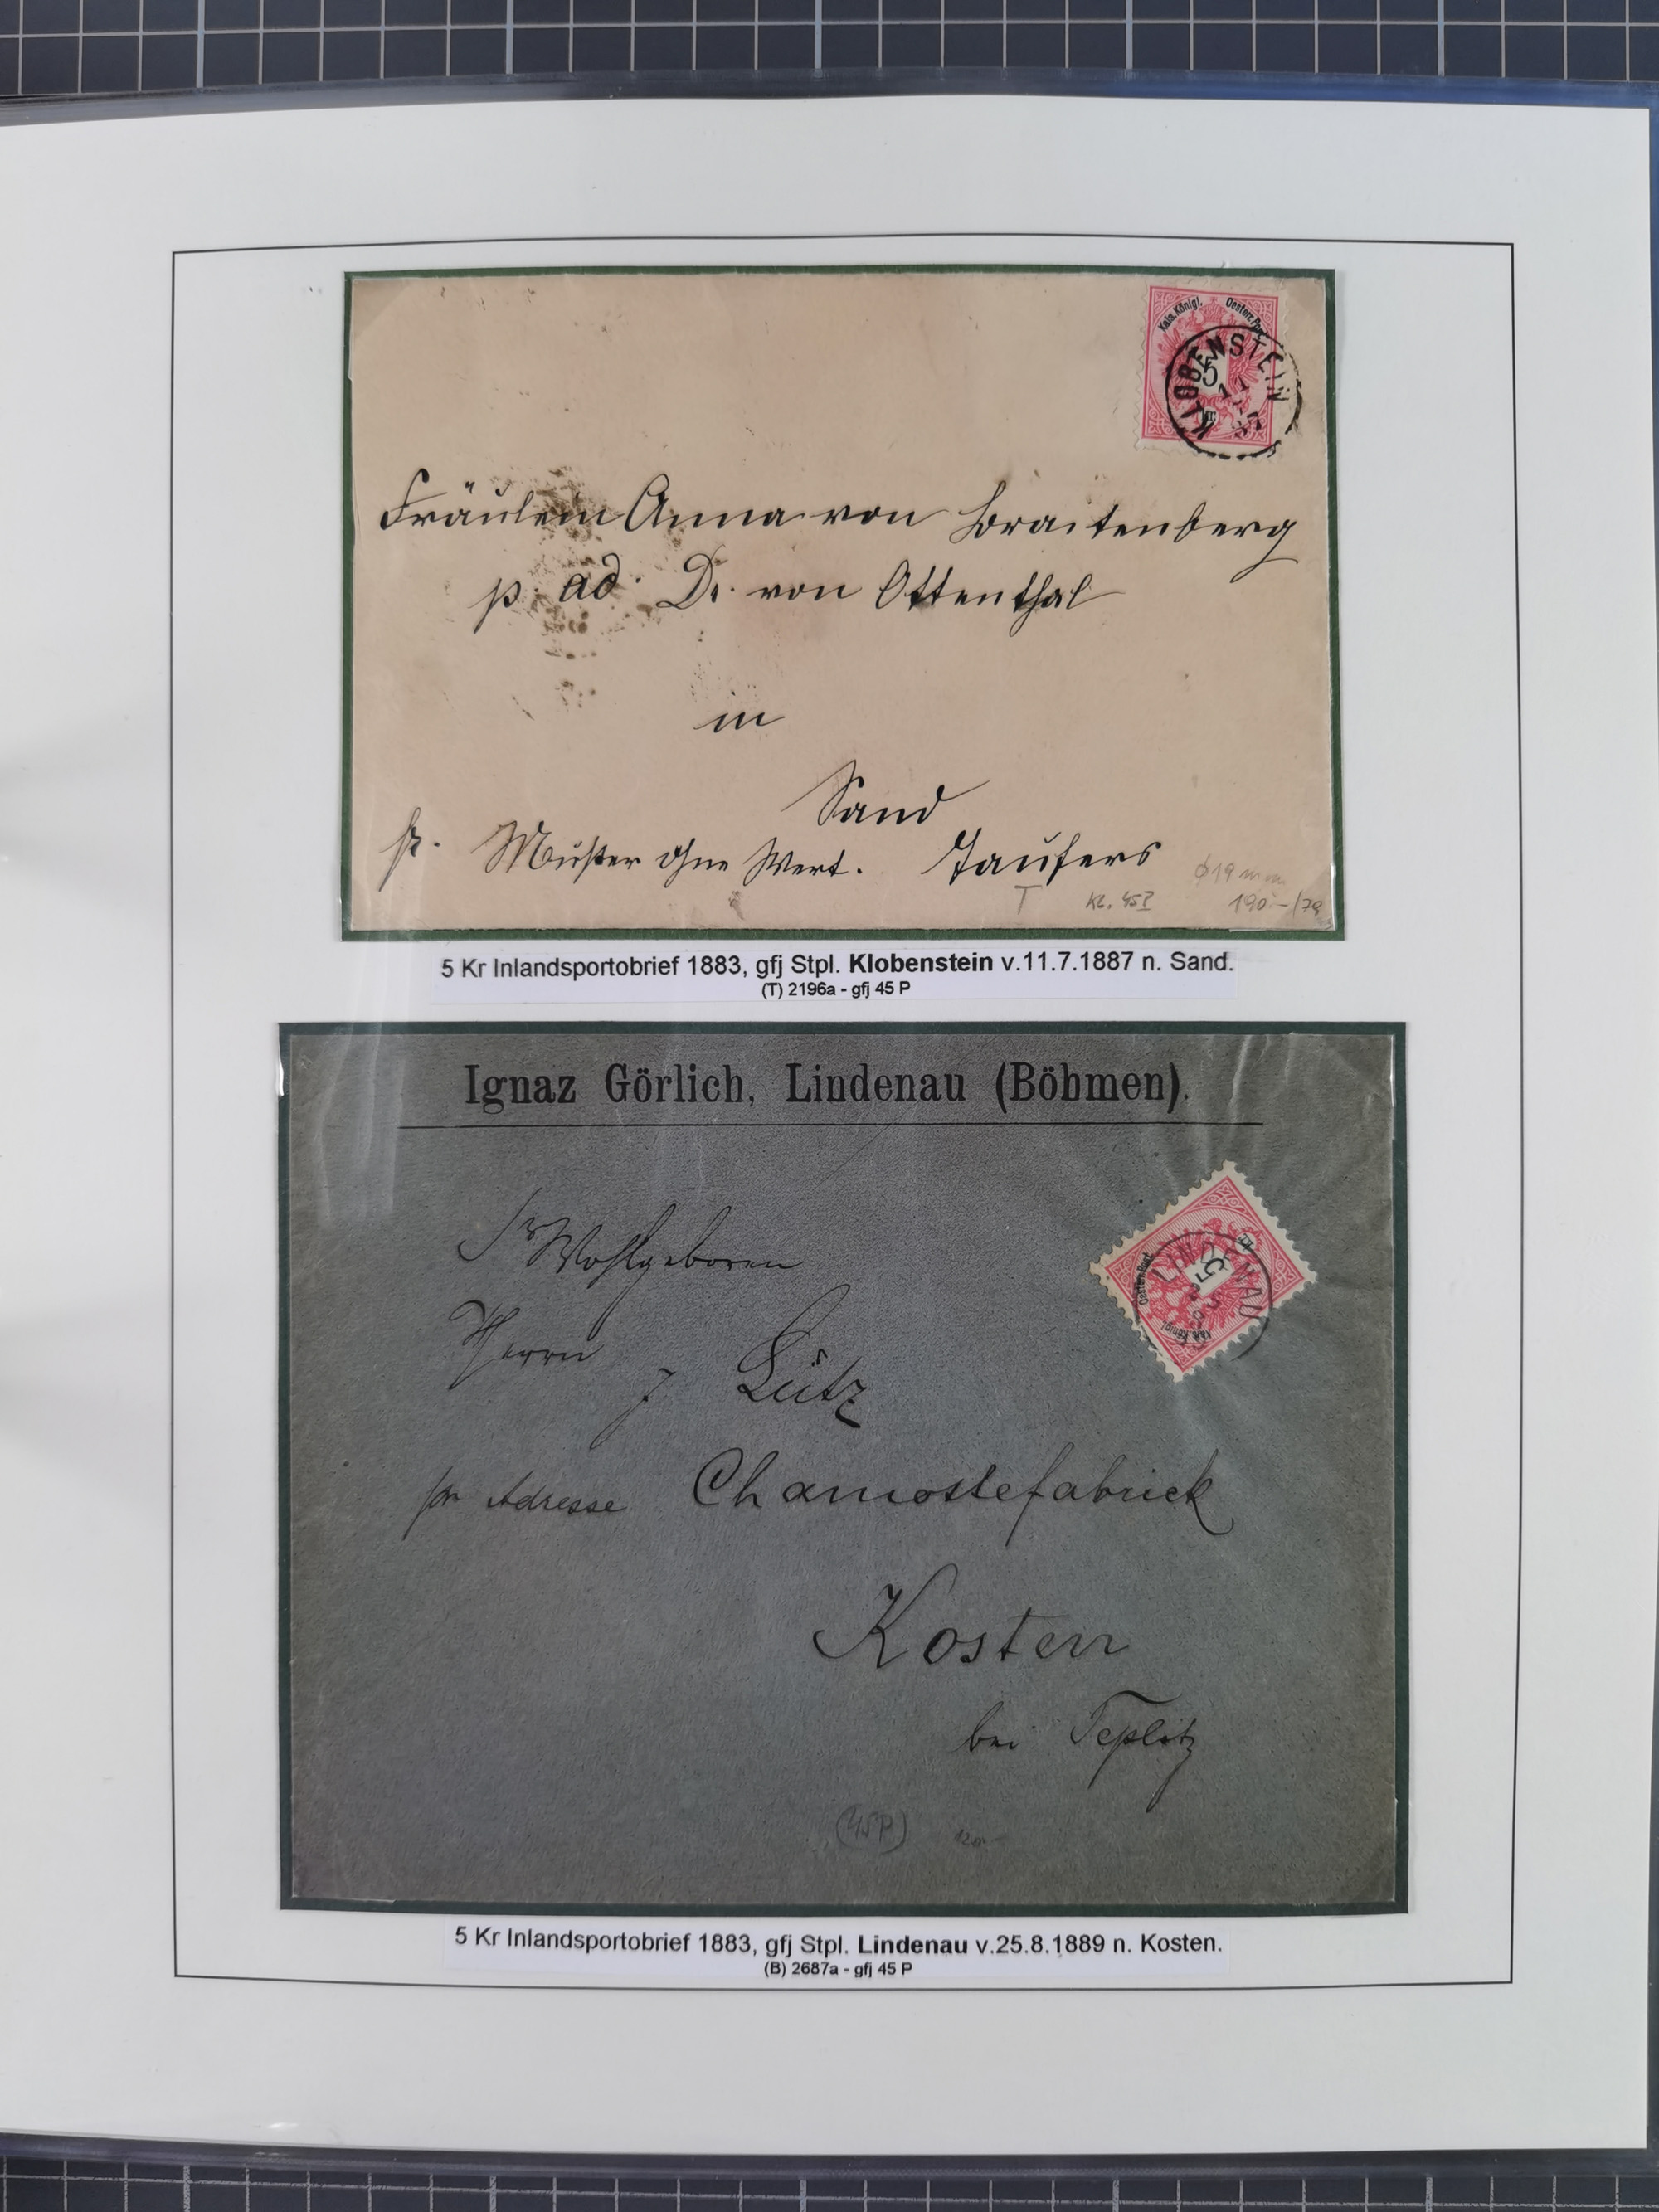 Kais. Königl. Oesterr. Post
5
kr
KLOBENSTEIN
11
7
87
Fräulein Anna von Braitenberg
p. ad. Dr. von Ottenthal
in
Sand
p. Muster ohne Wert. Taufers
φ 19 mm
T Kl. 45P 190.-/79
5 Kr Inlandsportobrief 1883, gfj Stpl. Klobenstein v.11.7.1887 n. Sand.
(T) 2196a - gfj 45 P
Ignaz Görlich, Lindenau (Böhmen).
Kais. Königl. Oesterr. Post
5
kr
LINDENAU
Sr Wohlgeboren
Herrn J Lütz
pr Adresse Chamottefabrick
Kosten
bei Teplitz
(45P) 120.-
5 Kr Inlandsportobrief 1883, gfj Stpl. Lindenau v.25.8.1889 n. Kosten.
(B) 2687a - gfj 45 P